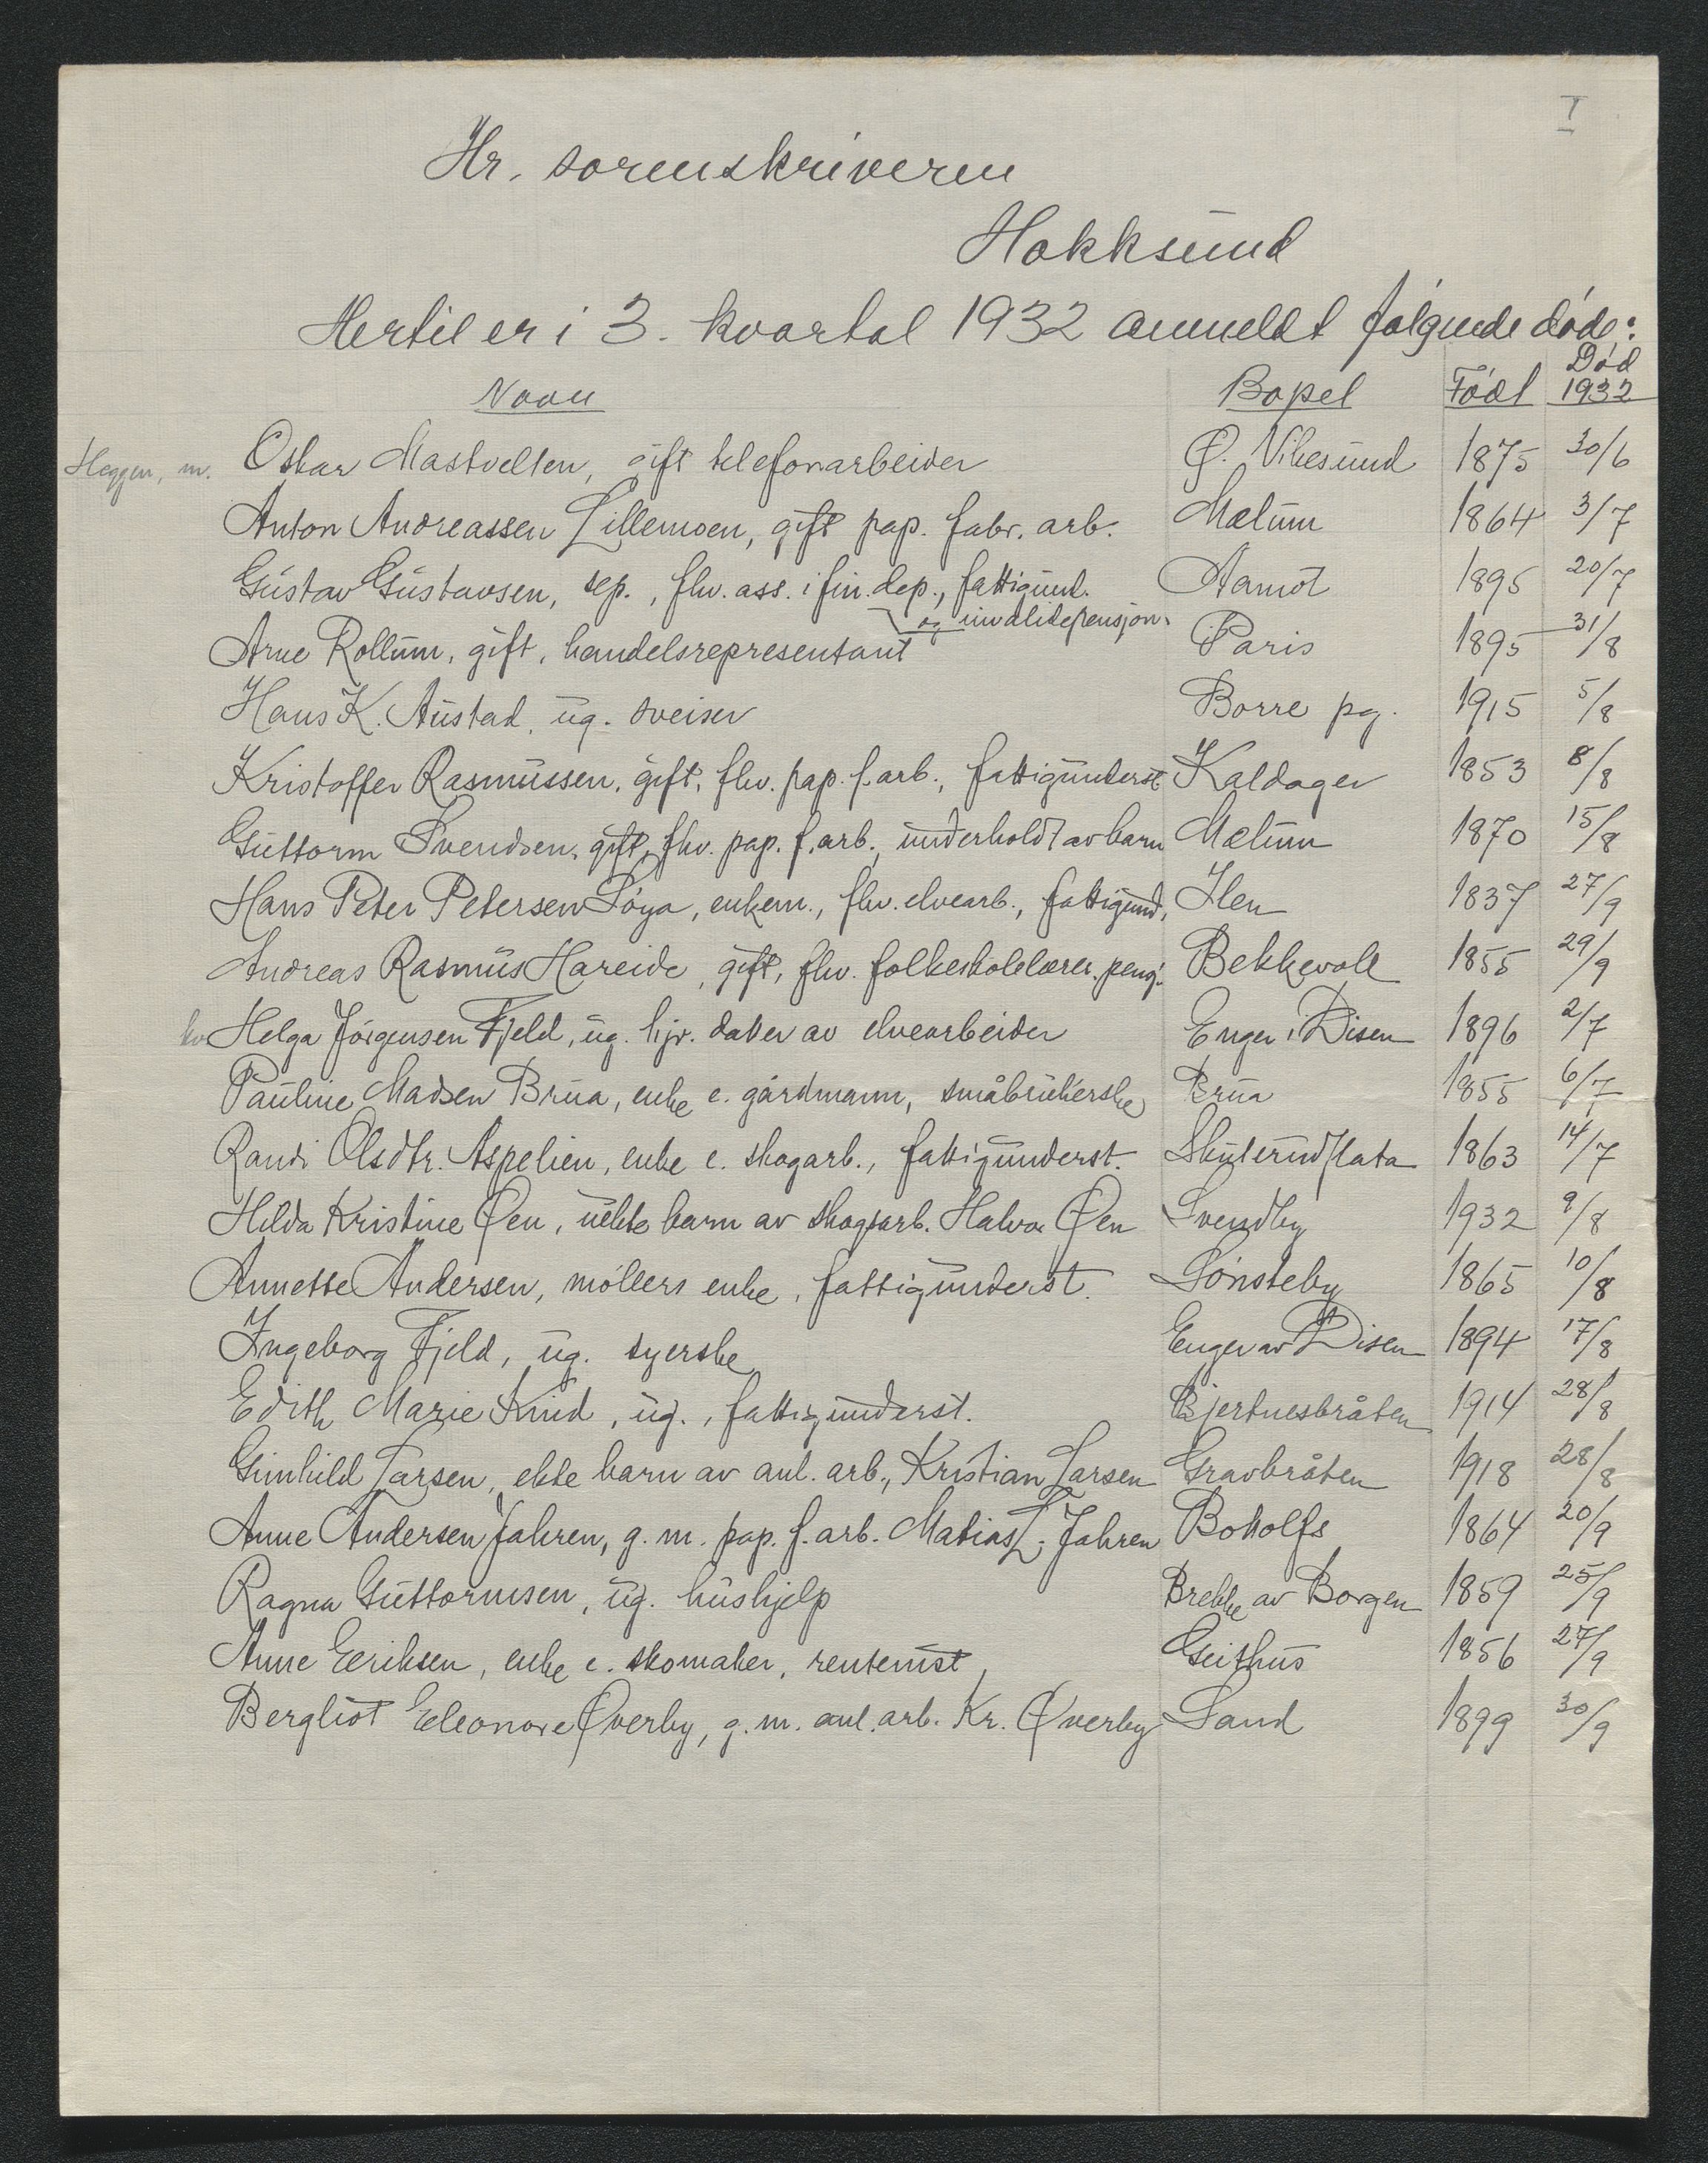 I
Hr. sorenskriveren
Hokksund
Hertil er i 3. kvartal 1932 anmeldt følgende døde:
Navn Bopel Født Død 1932
Heggen, m. Oskar Mastvelten, gift telefonarbeider Ø. Vikesund 1875 30/6
Anton Andreassen Lillemoen, gift pap. fabr. arb. Mælum 1864 3/7
Gustav Gustavsen, sep., fhv. ass. i fin. dep., fattigund. Aamot 1895 20/7
og invalidepensjon.
Arne Rollum, gift, handelsrepresentant Paris 1895 31/8
Hans K. Austad, ug. sveiser Borre pg. 1915 5/8
Kristoffer Rasmussen, gift, fhv. pap. f. arb., fattigunderst. Kaldager 1853 8/8
Guttorm Svendsen, gift, fhv. pap. f. arb., underholdt av barn Mælum 1870 15/8
Hans Peter Petersen Løya, enkem., fhv. elvearb., fattigund. Hen 1837 27/9
Andreas Rasmus Hareide, gift, fhv. folkeskolelærer. pensj. Bekkevoll 1855 29/9
kv Helga Jørgensen Fjeld, ug. hjv. datter av elvearbeider Enger i Disen 1896 2/7
Pauline Madsen Brua, enke e. gårdmann, småbrukerske Brua 1855 6/7
Randi Olsdtr. Aspelien, enke e. skogarb., fattigunderst. Skuterudflata 1863 14/7
Hilda Kristine Øen, uekte barn av skogsarb. Halvor Øen Svendby 1932 9/8
Annette Andersen, møllers enke, fattigunderst. Sønsteby 1865 10/8
Ingeborg Fjeld, ug. syerske Enger av Disen 1894 17/8
Edith Marie Kind, ug., fattigunderst. Bjertnesbråten 1914 28/8
Gunhild Larsen, ekte barn av anl. arb., Kristian Larsen Gravbråten 1918 28/8
Anne Andersen Jahren, g. m. pap. f. arb. Matias L. Jahren Bottolfs 1864 20/9
Ragna Guttormsen, ug. hushjelp Brekke av Borgen 1859 25/9
Anne Eeriksen, enke e. skomaker, rentenist Geithus 1856 27/9
Bergliot Eleonore Øverby, g. m. anl. arb. Kr. Øverby Sand 1899 30/9